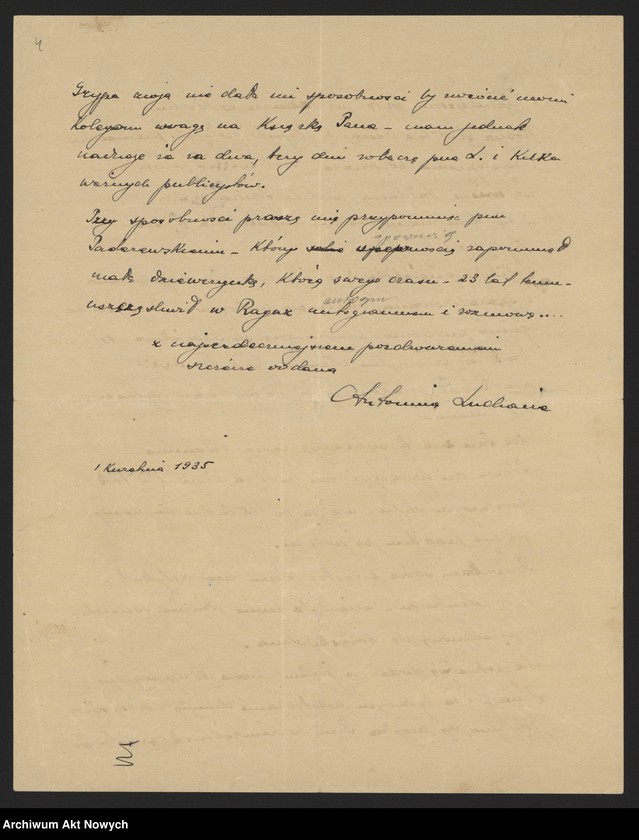 4
Grypa moja nie dała mi sposobności by zwrócić moim
kolegom uwagę na Książkę Pana – mam jednak
nadzieję że za dwa, trzy dni zobaczę pna L. i kilka
ważnych publicystów.
Przy sposobności proszę mię przypomnieć pnu
Paderewskiemu – który zapomniał
małą dziewczynkę, którą swego czasu – 23 lat temu –
uszczęśliwił w Ragaz autogramem i rozmową....
z najserdeczniejszem pozdrowieniem
szczerze oddana
Antonina
1 Kwietnia 1935
Archiwum Akt Nowych